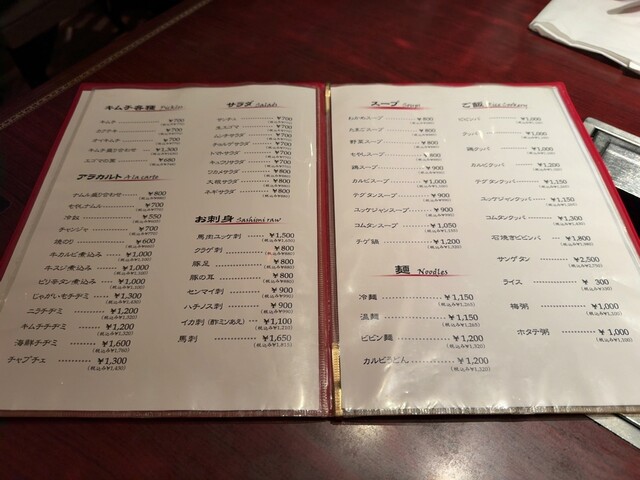 キムチ各種
キムチ ¥700
カクテキ ¥700
オイキムチ ¥700
キムチ盛合わせ ¥1,300
エゴマの葉 ¥680
アラカルト A la carte
ナムル盛合わせ ¥800
もやしナムル ¥700
冷奴 ¥550
チャンジャ ¥700
焼のり ¥600
牛カルビ煮込み ¥1,000
牛スジ煮込み ¥1,000
ピリ辛タン煮込み ¥1,000
じゃがいもチヂミ ¥1,300
ニラチヂミ ¥1,200
キムチチヂミ ¥1,200
海鮮チヂミ ¥1,600
チャプチェ ¥1,300
サラダ Salads
サンチュ ¥700
生エゴマ ¥700
ムンチサラダ ¥700
チョレギサラダ ¥700
トマトサラダ ¥700
キュウリサラダ ¥700
ワカメサラダ ¥800
大根サラダ ¥800
ネギサラダ ¥800
お刺身 Sashimi raw
馬肉ユッケ刺 ¥1,500
(税込み¥1,650)
クラゲ刺 ¥800
(税込み¥880)
豚足 ¥800
(税込み¥880)
豚の耳 ¥800
(税込み¥880)
センマイ刺 ¥900
(税込み¥990)
ハチノス刺 ¥900
(税込み¥990)
イカ刺 (酢ミンあえ) ¥1,100
(税込み¥1,210)
馬刺 ¥1,650
(税込み¥1,815)
スープ Soups
わかめスープ ¥800
たまごスープ ¥800
野菜スープ ¥800
もやしスープ ¥800
鶏スープ ¥900
カルビスープ ¥1,000
テグタンスープ ¥900
ユッケジャンスープ ¥900
コムタンスープ ¥1,050
チゲ鍋 ¥1,200
麺 Noodles
冷麺 ¥1,150
(税込み¥1,265)
温麺 ¥1,150
(税込み¥1,265)
ビビン麺 ¥1,200
(税込み¥1,320)
カルビうどん ¥1,200
(税込み¥1,320)
ご飯 Rice Cookery
ビビンバ ¥1,000
クッパ ¥1,000
鶏クッパ ¥1,100
カルビクッパ ¥1,200
テグタンクッパ ¥1,150
ユッケジャンクッパ ¥1,150
コムタンクッパ ¥1,300
石焼きビビンバ ¥1,800
サンゲタン ¥2,500
ライス ¥300
梅粥 ¥1,000
(税込み¥1,100)
ホタテ粥 ¥1,000
(税込み¥1,100)